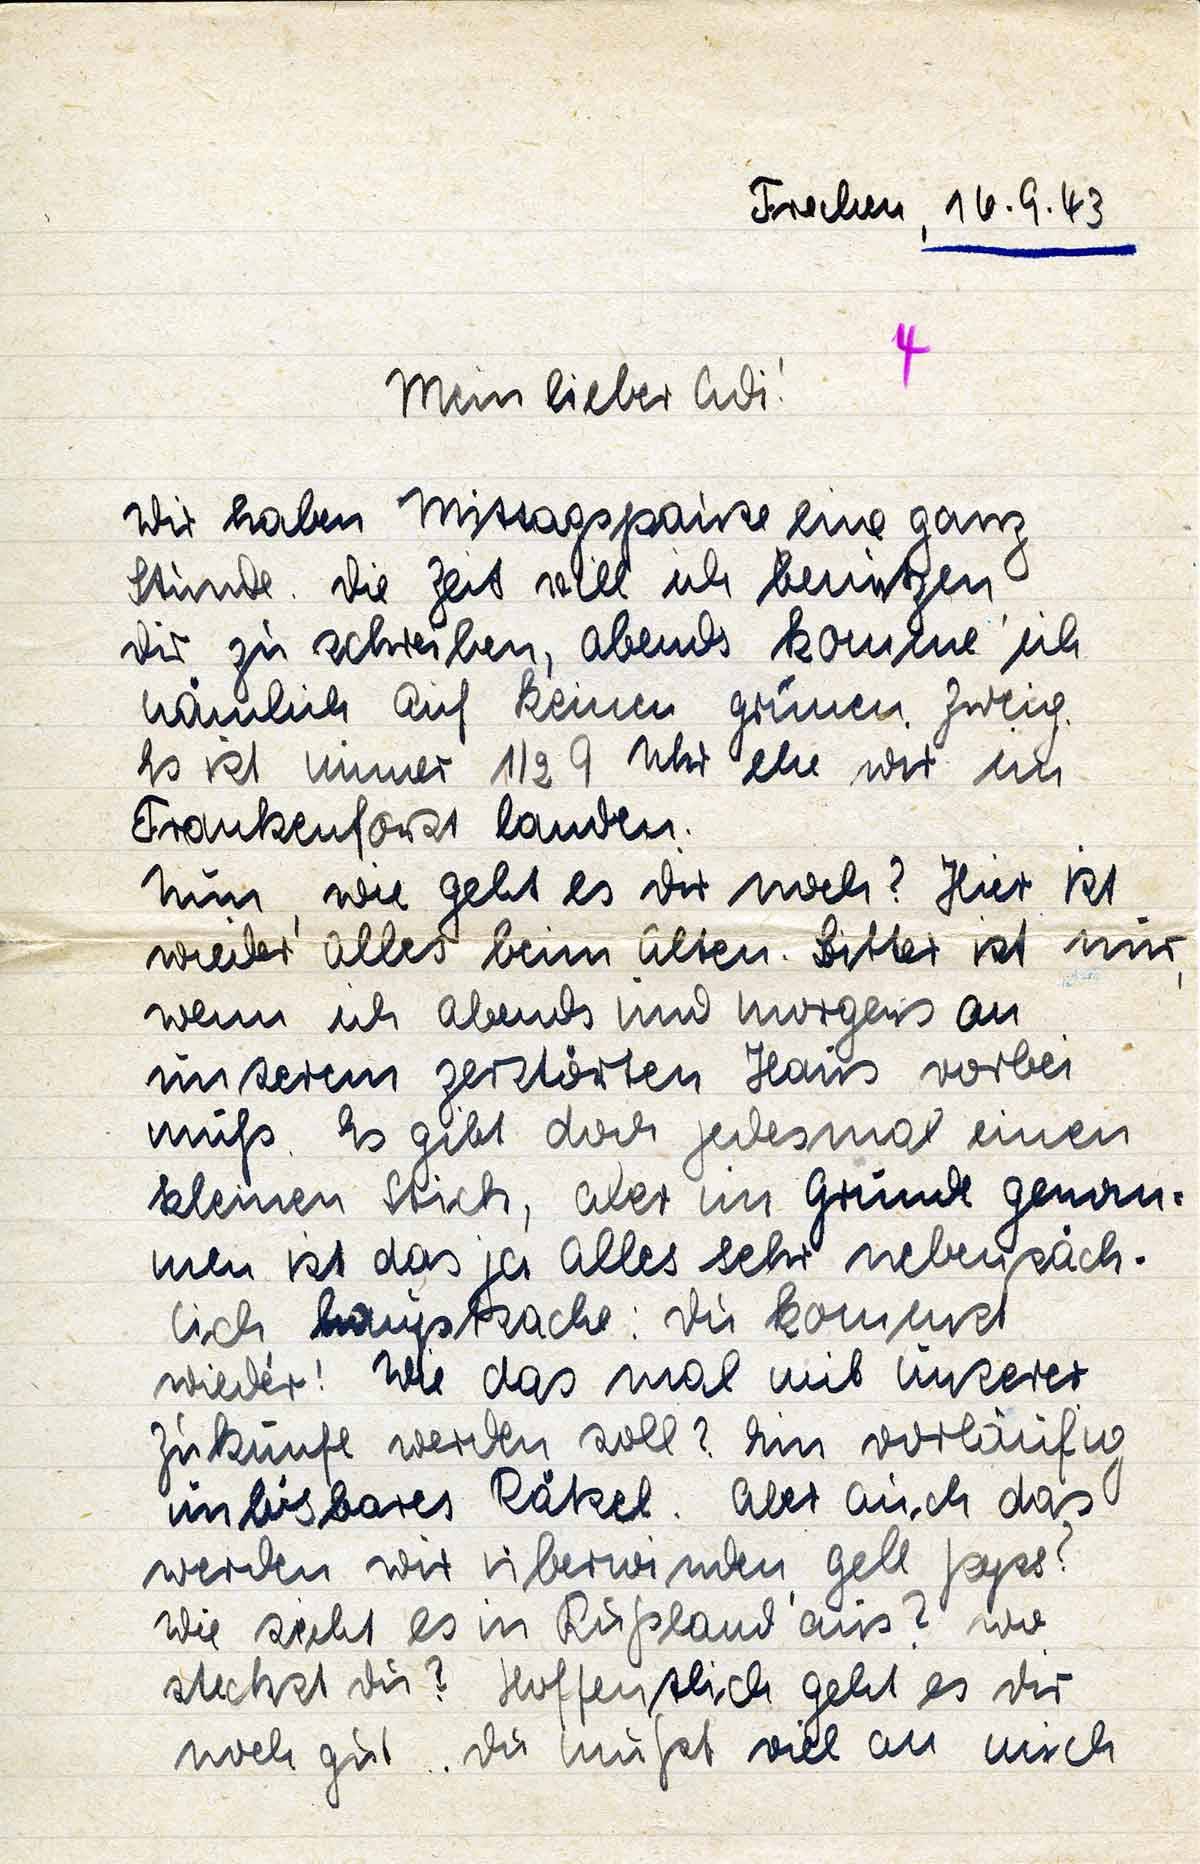 Frechen, 16.9.43
4
Mein lieber Adi!
Wir haben Mittagspause eine ganz
Stunde. Die Zeit will ich benützen
dir zu schreiben, abends komme ich
nämlich auf keinen grünen Zweig.
Es ist immer 1/2 9 Uhr ehe wir in
Frankenforst landen.
Nun, wie geht es dir noch? Hier ist
wieder alles beim Alten. Bitter ist nur,
wenn ich abends und morgens an
unserem zerstörten Haus vorbei
muß. Es gibt doch jedesmal einen
kleinen Stich, aber im Grunde genom-
men ist das ja alles sehr nebensäch-
lich hauptsache: du kommst
wieder! Wie das mal mit unserer
Zukunft werden soll? Ein vorläufig
unlösbares Rätsel. Aber auch das
werden wir überwinden, gell
Wie sieht es in Rußland aus? wo
steckst du? Hoffentlich geht es dir
noch gut.. du mußt viel an mich